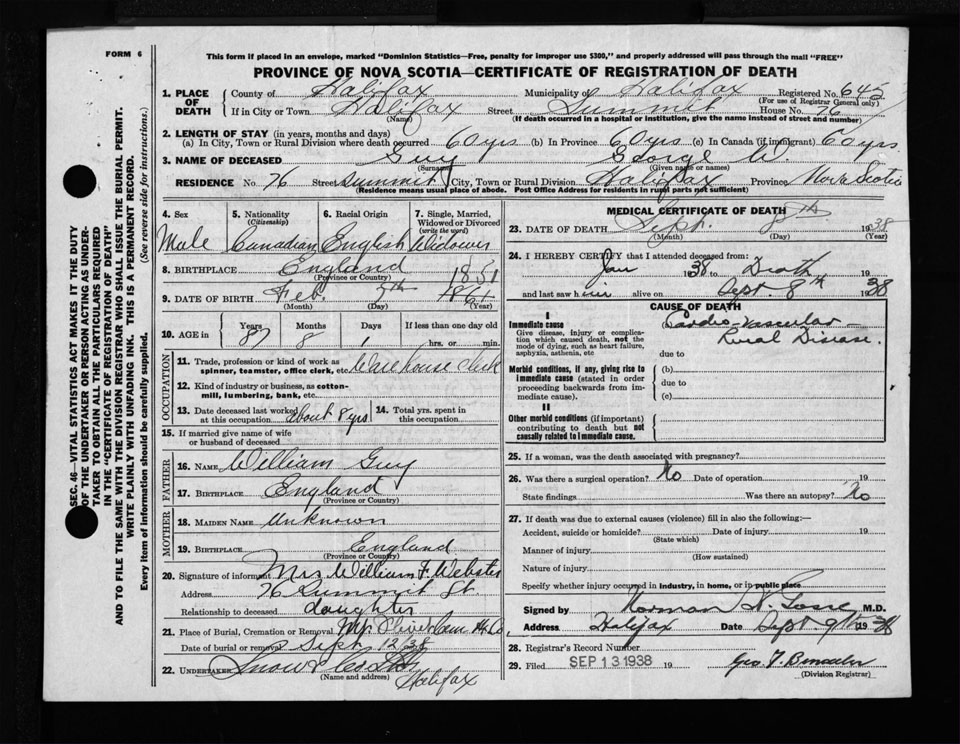 FORM 6
This form if placed in an envelope, marked "Dominion Statistics—Free, penalty for improper use $300," and properly addressed will pass through the mail "FREE"
PROVINCE OF NOVA SCOTIA—CERTIFICATE OF REGISTRATION OF DEATH
1. PLACE OF DEATH
County of Halifax Municipality of Halifax Registered No. 645
(For use of Registrar General only)
If in City or Town Halifax Street Summit House No. 76
(Name) (If death occurred in a hospital or institution, give the name instead of street and number)
2. LENGTH OF STAY (in years, months and days)
(a) In City, Town or Rural Division where death occurred 60 yrs (b) In Province 60 yrs (c) In Canada (if immigrant) 60 yrs.
3. NAME OF DECEASED Guy George W.
(Surname) (Given name or names)
RESIDENCE No. 76 Street Summit City, Town or Rural Division Halifax Province Nova Scotia
(Residence means usual place of abode. Post Office Address for residents in rural parts not sufficient)
SEC. 46—VITAL STATISTICS ACT MAKES IT THE DUTY
OF THE UNDERTAKER OR PERSON ACTING AS UNDER-
TAKER TO OBTAIN ALL THE PARTICULARS REQUIRED
IN THE "CERTIFICATE OF REGISTRATION OF DEATH"
AND TO FILE THE SAME WITH THE DIVISION REGISTRAR WHO SHALL ISSUE THE BURIAL PERMIT.
WRITE PLAINLY WITH UNFADING INK. THIS IS A PERMANENT RECORD.
Every item of information should be carefully supplied. (See reverse side for instructions.)
4. Sex
Male
5. Nationality
(Citizenship)
Canadian
6. Racial Origin
English
7. Single, Married,
Widowed or Divorced
(write the word)
Widower
8. BIRTHPLACE England
(Province or Country)
1851
9. DATE OF BIRTH Feb. 7th 1861
(Month) (Day) (Year)
10. AGE in Years Months Days If less than one day old
87 8 1 hrs. or min.
OCCUPATION
11. Trade, profession or kind of work as
spinner, teamster, office clerk, etc. Warehouse clerk
12. Kind of industry or business, as cotton-
mill, lumbering, bank, etc.
13. Date deceased last worked
at this occupation about 8 yrs
14. Total yrs. spent in
this occupation
15. If married give name of wife
or husband of deceased
FATHER
16. NAME William Guy
17. BIRTHPLACE England
(Province or Country)
MOTHER
18. MAIDEN NAME Unknown
19. BIRTHPLACE England
(Province or Country)
20. Signature of informant Mrs William F. Webster
Address 76 Summit St.
Relationship to deceased daughter
21. Place of Burial, Cremation or Removal Mt. Olivet
Date of burial or removal Sept 12/38
22. UNDERTAKER Snow & Co
(Name and address)
Halifax
MEDICAL CERTIFICATE OF DEATH
23. DATE OF DEATH Sept. 8th 1938
(Month) (Day) (Year)
24. I HEREBY CERTIFY that I attended deceased from:
Jan 1938 to Death 19
and last saw him alive on Sept. 8th 1938
CAUSE OF DEATH
I
Immediate cause
Give disease, injury or complica-
tion which caused death, not the
mode of dying, such as heart failure,
asphyxia, asthenia, etc
Cardio-Vascular-
Renal Disease.
due to
Morbid conditions, if any, giving rise to
immediate cause (stated in order
proceeding backwards from im-
mediate cause).
(b)
due to
(c)
II
Other morbid conditions (if important)
contributing to death but not
causally related to immediate cause.
25. If a woman, was the death associated with pregnancy?
26. Was there a surgical operation? No Date of operation 19
State findings Was there an autopsy? No
27. If death was due to external causes (violence) fill in also the following:—
Accident, suicide or homicide? Date of injury 19
(State which)
Manner of injury
(How sustained)
Nature of injury
Specify whether injury occurred in industry, in home, or in public place
Signed by Norman H. Gosse M.D.
Address Halifax Date Sept. 9th 1938
28. Registrar's Record Number
29. Filed SEP 13 1938 19
(Division Registrar)